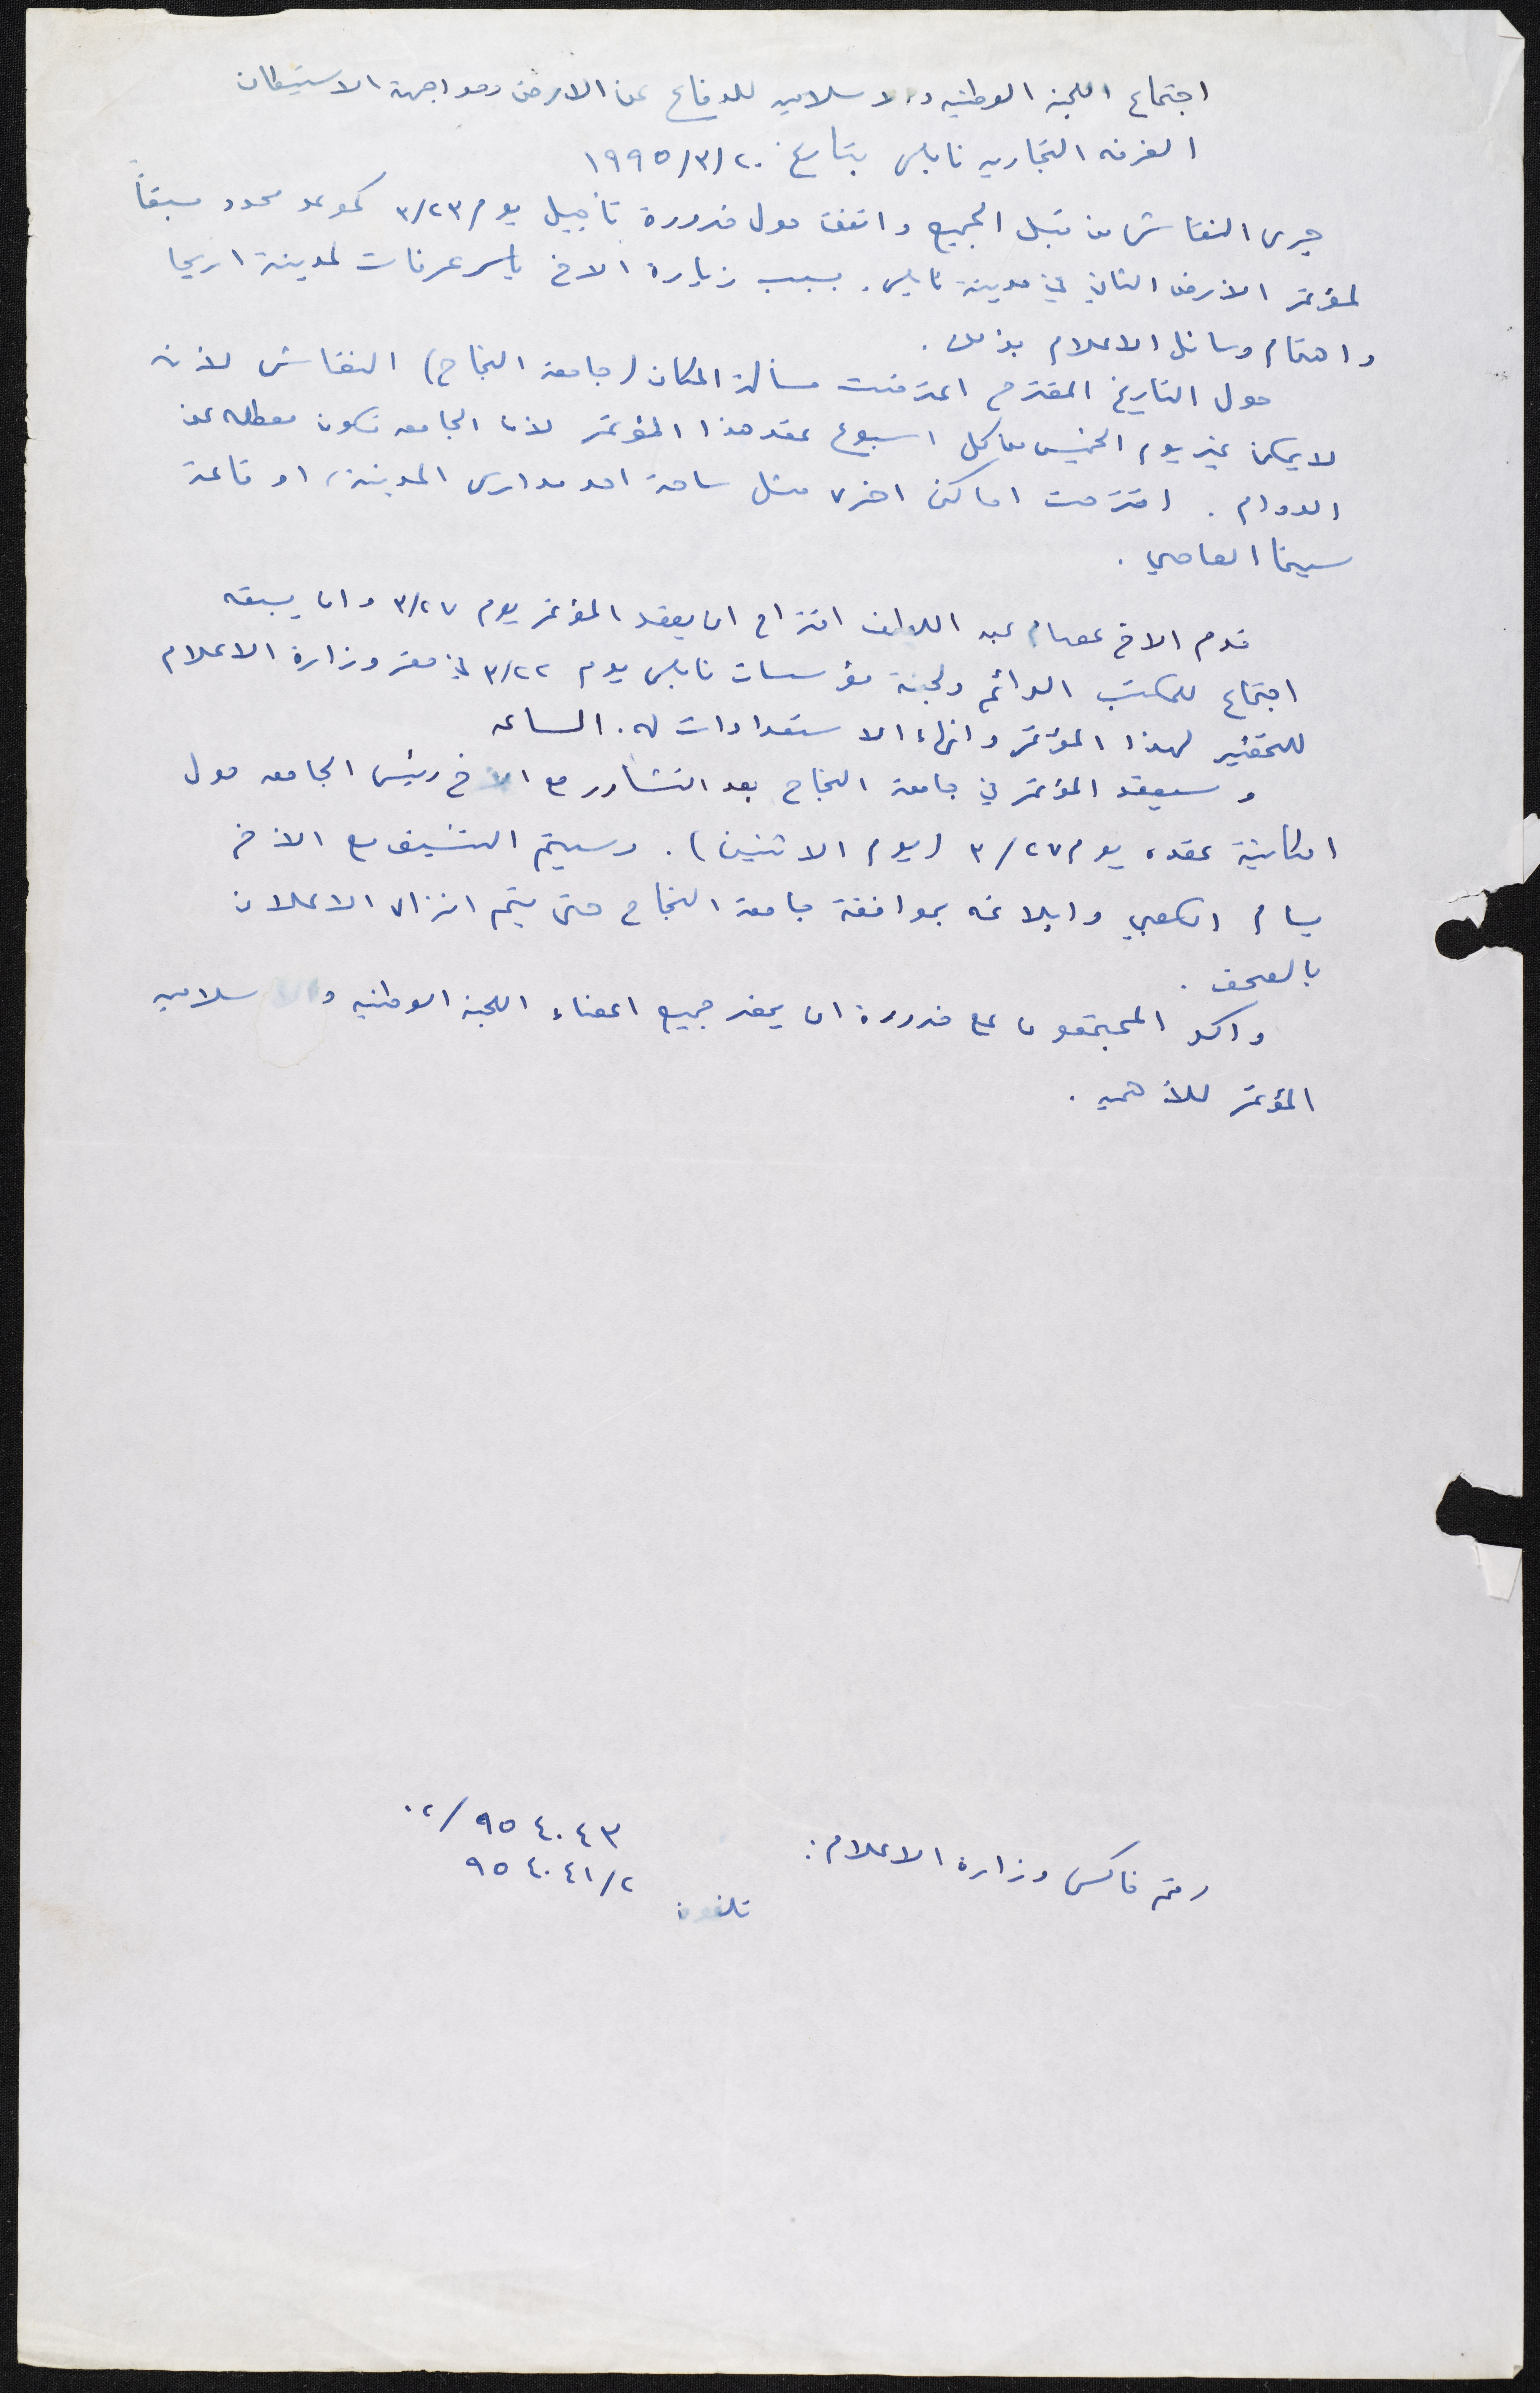 اجتماع اللجنه الوطنيه والاسلاميه للدفاع عن الارض ومواجهة الاستيطان
الغرفه التجاريه نابلس بتاريخ ١٩٩٥/٣/٢٠
جرى النقاش من قبل الجميع واتفق حول ضرورة تأجيل يوم ٣/٢٣ كموعد محدد مسبقاً
لمؤتمر الارض الثاني في مدينة نابلس. بسبب زيارة الاخ ياسر عرفات لمدينة اريحا
واهتمام وسائل الاعلام بذلك.
حول التاريخ المقترح اعترضت مسألة المكان (جامعة النجاح) النقاش لأنه
لا يمكن غير يوم الخميس من كل اسبوع عقد هذا المؤتمر لأن الجامعه تكون معطله عن
الدوام. اقترحت اماكن اخرى مثل ساحة احد مدارس المدينة، او قاعة
سينما العاصي.
قدم الاخ عصام عبد اللطيف اقتراح ان يعقد المؤتمر يوم ٣/٢٧ وان يسبقه
اجتماع للمكتب الدائم ولجنة مؤسسات نابلس يوم ٣/٢٢ في مقر وزارة الاعلام
للتحضير لهذا المؤتمر وانهاء الاستعدادات له. الساعه
وسيعقد المؤتمر في جامعة النجاح بعد التشاور مع الاخ رئيس الجامعه حول
امكانية عقده يوم ٣/٢٧ (يوم الاثنين). وسيتم التنسيق مع الاخ
بسام الكعبي وابلاغه بموافقة جامعة النجاح حتى يتم انزال الاعلان
بالصحف.
واكد المجتمعون على ضرورة ان يحضر جميع اعضاء اللجنه الوطنيه والاسلاميه
المؤتمر للأهميه.
رقم فاكس وزارة الاعلام: ٠٢/٩٥٤٠٤٣
تلفون ٩٥٤٠٤١/٢